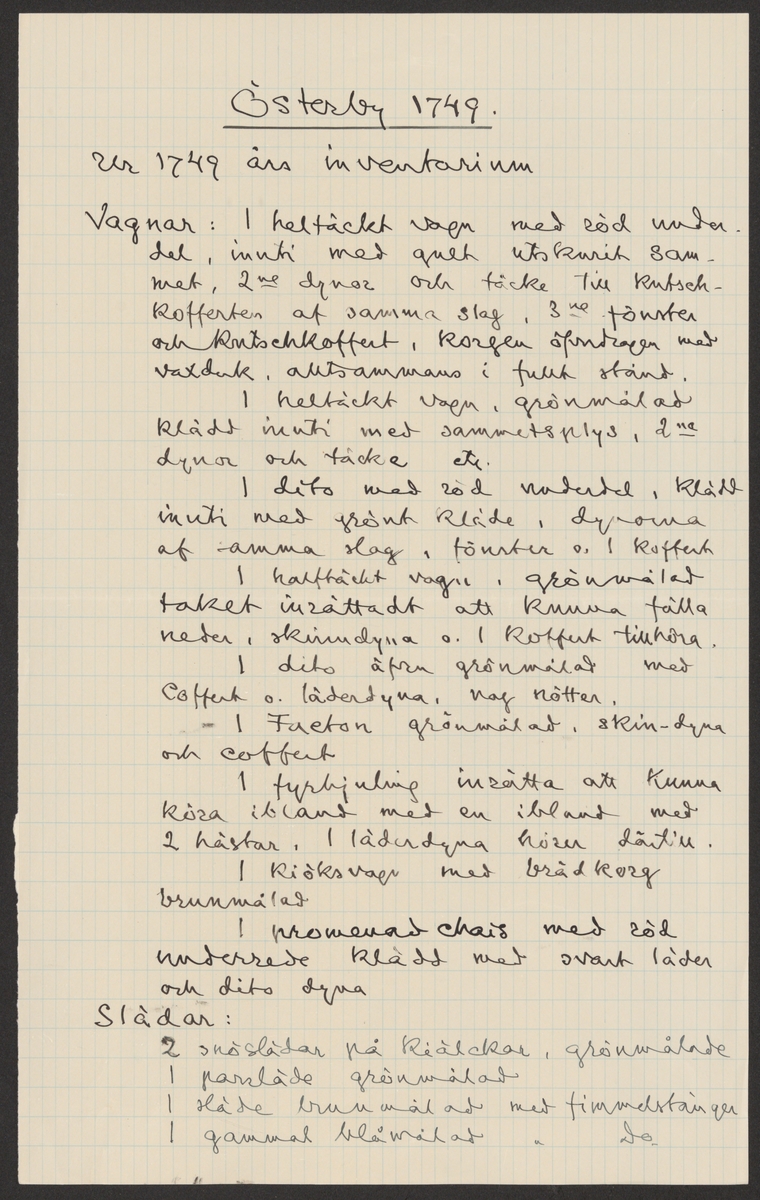 Österby 1749.
Ur 1749 års inventarium
Vagnar: 1 heltäckt vagn med röd under-
del, inuti med gult utskurit sam-
met, 2ne dynor och täcke till kutsch-
kofferten af samma slag, 3ne fönster
och kutschkoffert, korgen öfvdragen med
vaxduk, alltsammans i fullt stånd.
1 heltäckt vagn, grönmålad
klädd inuti med sammetsplys, 2ne
dynor och täcke etc.
1 dito med röd underdel, klädd
inuti med grönt kläde, dynorna
af samma slag, fönster o. 1 koffert
1 halftäckt vagn, grönmålad
taket inrättadt att kunna fälla
neder, skinndyna o. 1 koffert tillhöra.
1 dito äfven grönmålad med
Coffert o. läderdyna, nog nötter.
- 1 Faeton grönmålad, skin-dyna
och coffert
1 fyrhjuling inrätta att kunna
köra ibland med en ibland med
2 hästar, 1 läderdyna hörer därtill.
1 kiöksvagn med brädkorg
brunmålad
1 promenad chais med röd
underrede klädd med svart läder
och dito dyna
Slädar:
2 snöslädar på kiälckar, grönmålade
1 parsläde grönmålad
1 släde brunmålad med fimmelstänger
1 gammal blåmålad " Do